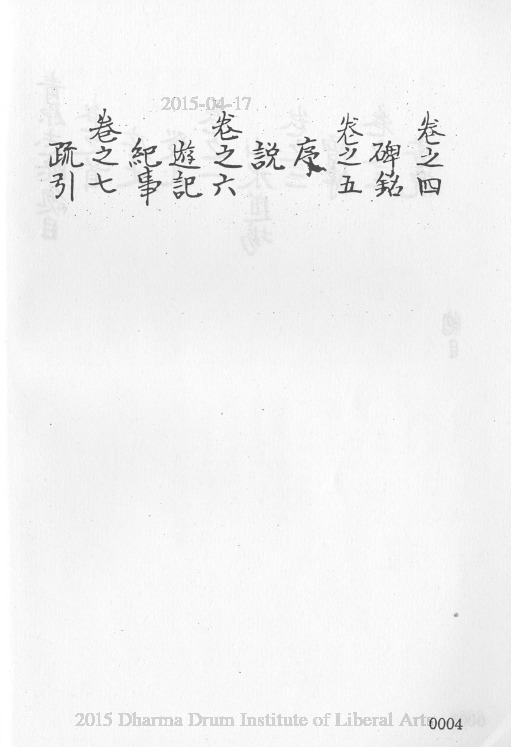 2015-04-17
卷之四
碑銘
卷之五
序
說
卷之六
遊記
紀事
卷之七
疏引
2015 Dharma Drum Institute of Liberal Arts
0004